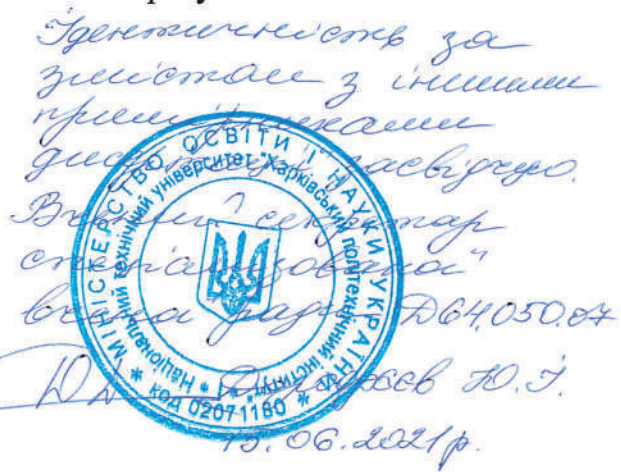 Ідентичність за
змістом з іншими
примірниками
дисертації засвідчую.
Вчений секретар
спеціалізованої
вченої ради Д64.050.07
Ю.І.
15.06.2021р.
МІНІСТЕРСТВО ОСВІТИ І НАУКИ УКРАЇНИ
* код 02071180 *
Національний технічний університет "Харківський політехнічний інститут"